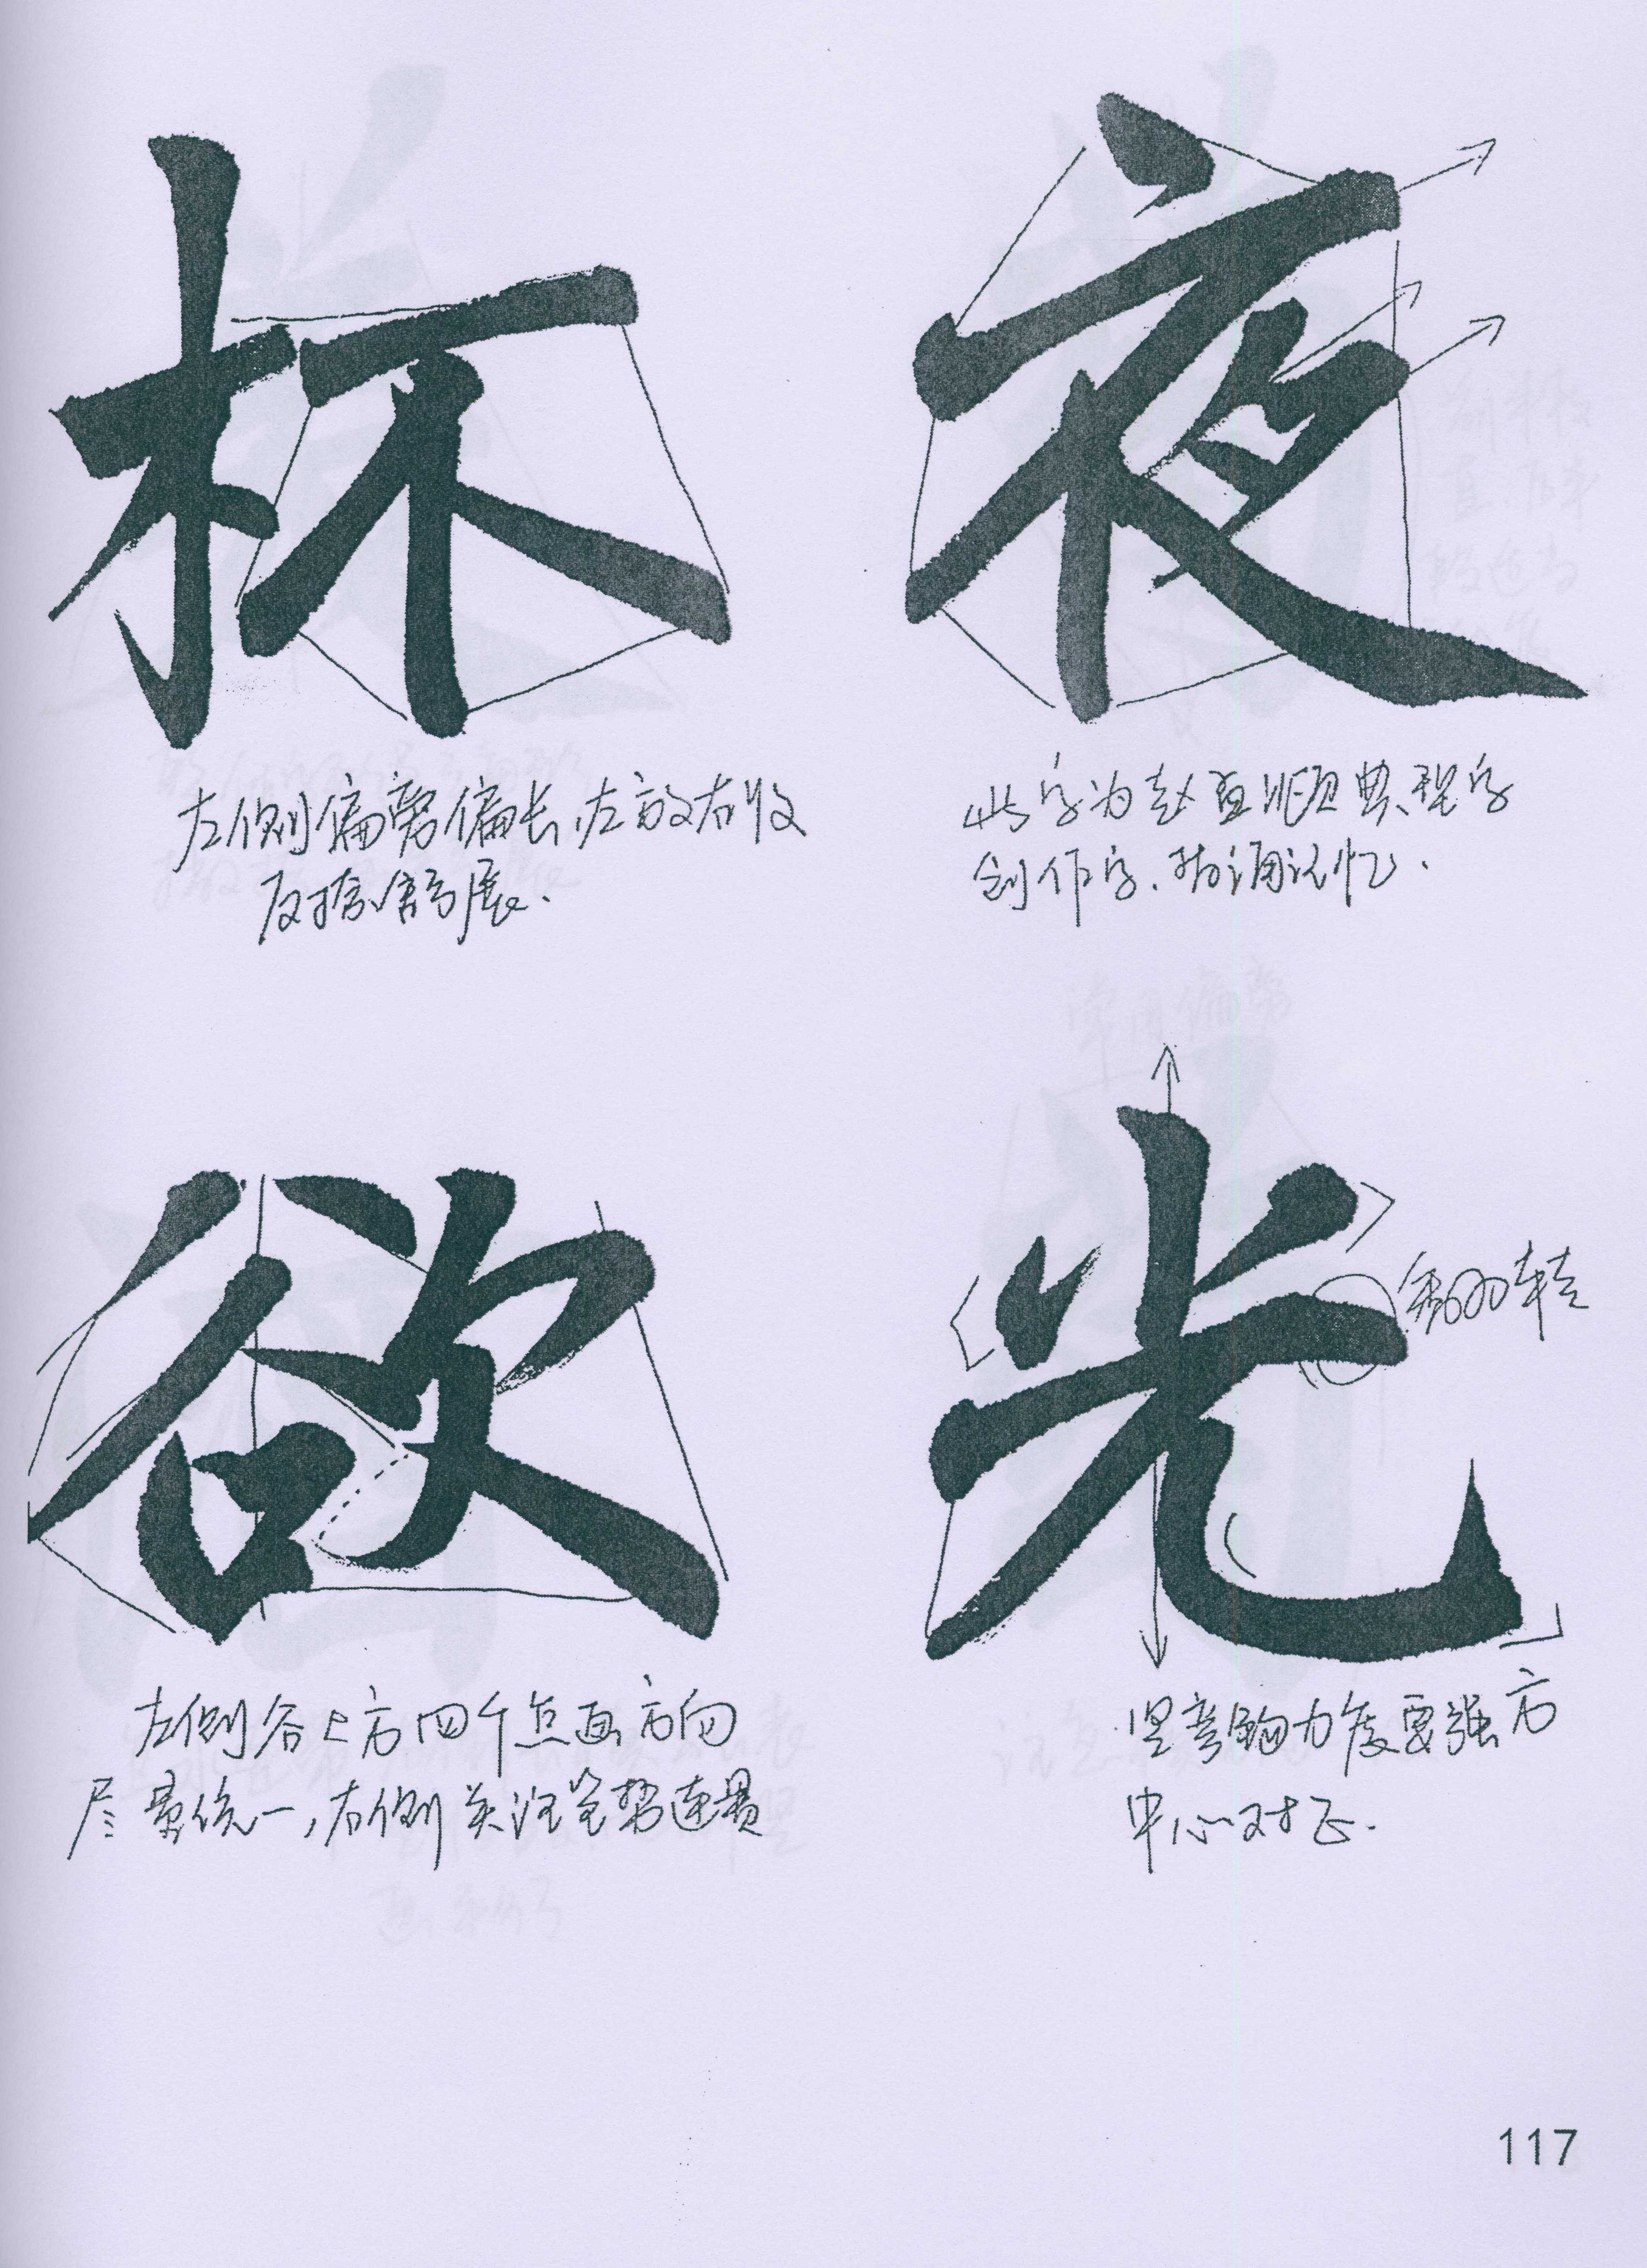 杯
左侧偏旁偏长,左放右收
反捺舒展.
夜
此字为赵直顺典型字
创作字.
记忆.
欲
左侧谷上方四个点画方向
尽量统一,右侧关注笔势连贯
光
翻转
竖弯钩力度要强方
中心对正.
117